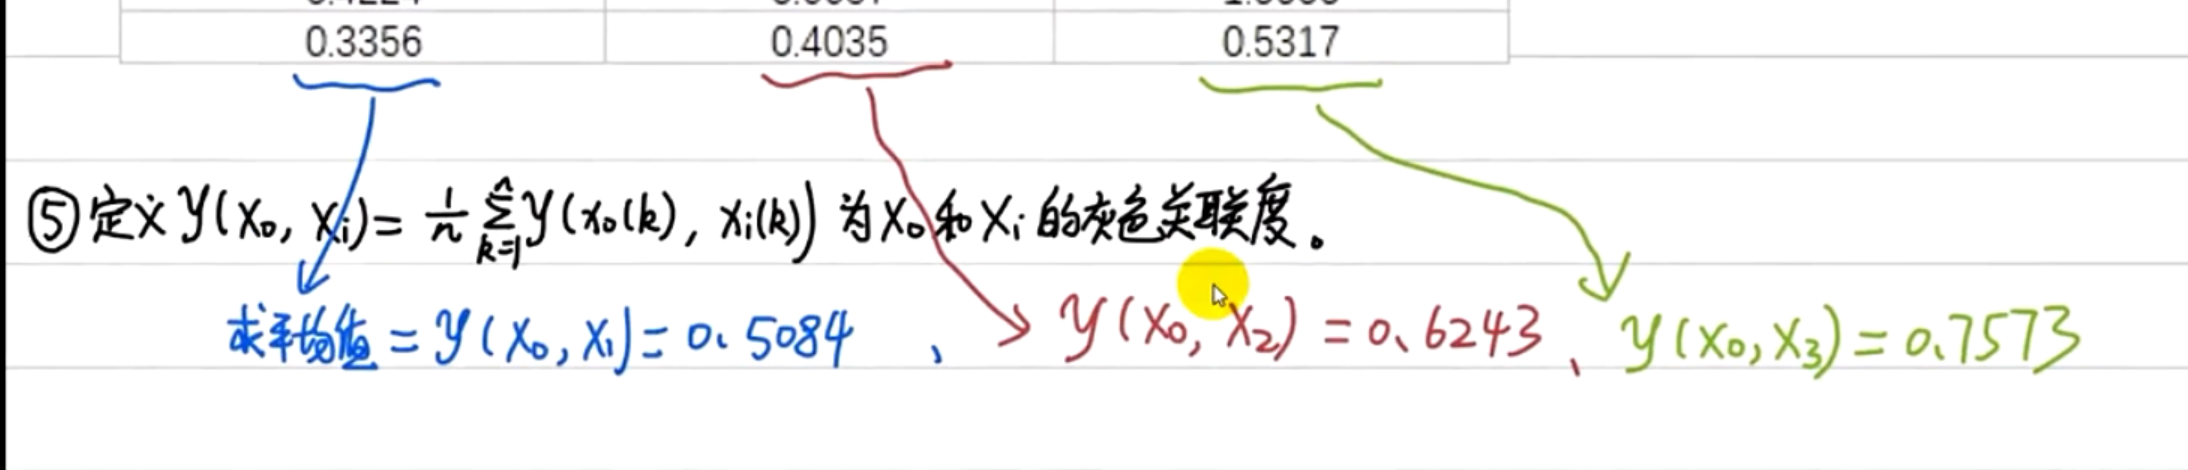 0.3356 0.4035 0.5317
⑤定义 y(x₀, xᵢ)= 1/n Σ(k=1, n) y(x₀(k), xᵢ(k)) 为x₀和xᵢ的灰色关联度。
求平均值 = y(x₀, x₁)= 0.5084 、 y(x₀, x₂) = 0.6243 、 y(x₀, x₃) = 0.7573